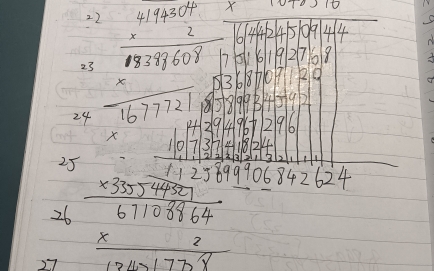 22 4194304 × 1048576
× 2
6442450944
23 8388608 7516192768
× 5368709120
24 16777216 8589934592
× 4294967296
1073741824
25 1125899906842624
×33554432
26 67108864
× 2
27 134217728